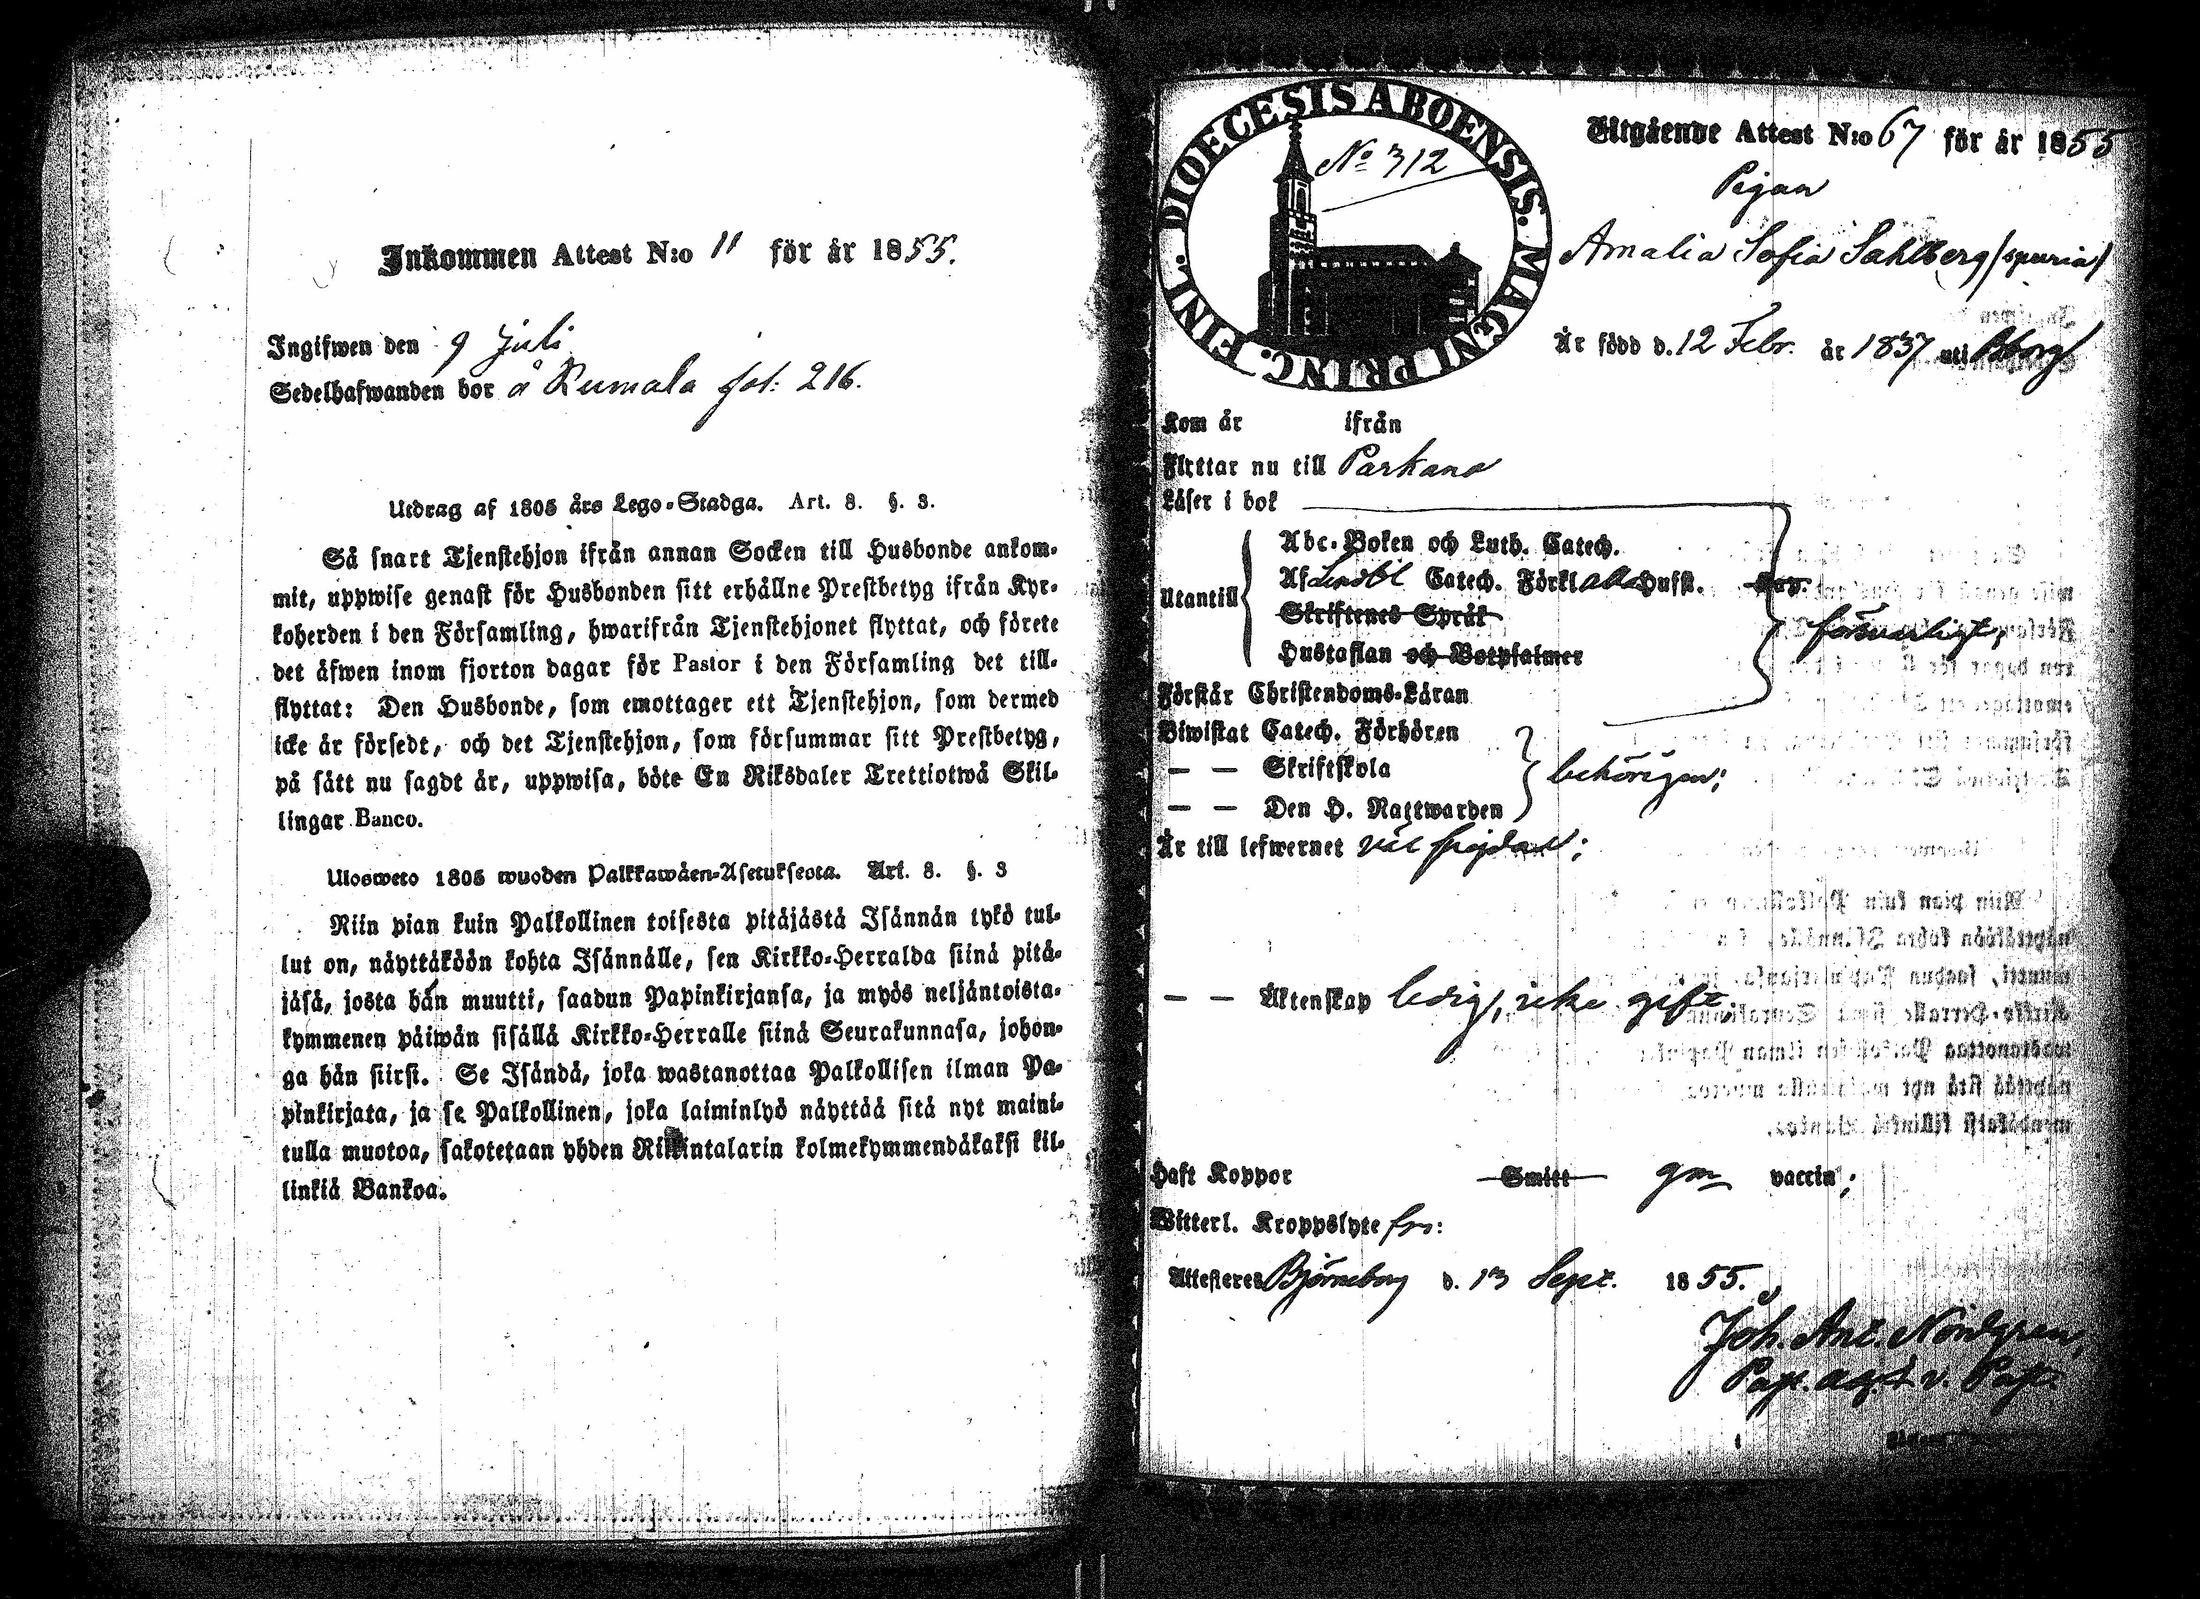 Inkommen Attest N:o 11 för år 1855.
Ingifwen den 9 Juli
Sedelhafwanden bor å Rumala fol: 216.
Utdrag af 1805 års Lego-Stadga. Art. 8. §. 3.
Så snart Tjenstehjon ifrån annan Socken till Husbonde ankom-
mit, uppwise genast för Husbonden sitt erhållne Prestbetyg ifrån Kyr-
koherden i den Församling, hwarifrån Tjenstehjonet flyttat, och förete
det äfwen inom fjorton dagar för Pastor i den Församling det till-
flyttat: Den Husbonde, som emottager ett Tjenstehjon, som dermed
icke är försedt, och det Tjenstehjon, som försummar sitt Prestbetyg,
på sätt nu sagdt är, uppwisa, böte En Riksdaler Trettiotwå Skil-
lingar Banco.
Ulosweto 1805 wuoden Palkkawäen-Asetuksesta. Art. 8. §. 3
Niin pian kuin Palkollinen toisesta pitäjästä Isännän tykö tul-
lut on, näyttäköön kohta Isännälle, sen Kirkko-Herralda siinä pitä-
jäsä, josta hän muutti, saadun Papinkirjansa, ja myös neljäntoista-
kymmenen päiwän sisällä Kirkko-Herralle siinä Seurakunnasa, johon-
ga hän siirsi. Se Isändä, joka wastanottaa Palkollisen ilman Pa-
pinkirjata, ja se Palkollinen, joka laiminlyö näyttää sitä nyt maini-
tulla muotoa, sakotetaan yhden Riikintalarin kolmekymmendäkaksi kil-
linkiä Bankoa.
DIOECESIS ABOENSIS. MAGNI PRINC. FINL.
No 312
Utgående Attest N:o 67 för år 1855
Pigan
Amalia Sofia Sahlberg /spuria/
Är född d. 12 Febr. år 1837 uti Bborg
Kom år ifrån
Flyttar nu till Parkano
Läser i bok
Utantill
Abc-Boken och Luth. Catech.
Af Catech. Förkl alla Hufst.
Skriftenes Språk
Hustaflan och Botpsalmer
försvarligt;
Förstår Christendoms-Läran
Biwistat Catech. Förhören
— — Skriftskola
— — Den H. Nattwarden
behörigen;
Är till lefwernet väl frejdad;
— — Äktenskap ledig, icke gift
Haft Koppor Smitt gm vaccin;
Witterl. Kroppslyte fri:
Attesteres Björneborg d. 13 Sept. 1855.
Joh. Ant. Nordgren,
Past. adj. v. Past.